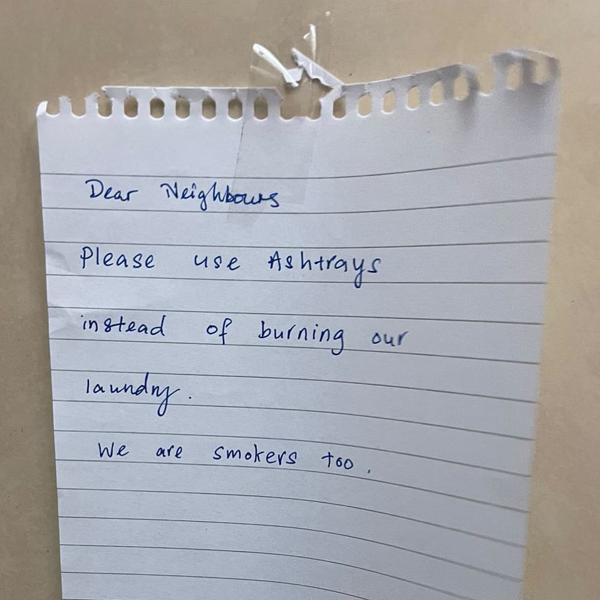 Dear Neighbours
Please use Ashtrays
instead of burning our
laundry.
We are smokers too.